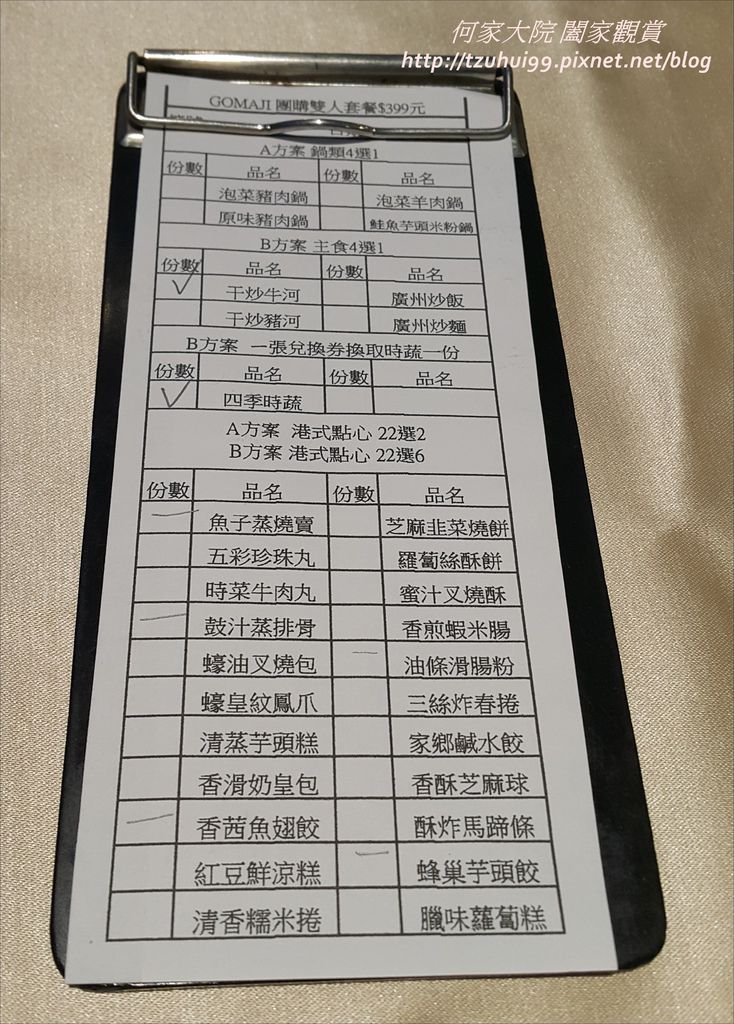 何家大院 闔家觀賞
http://tzuhui99.pixnet.net/blog
GOMAJI 團購雙人套餐$399元
A方案 鍋類4選1
份數 品名 份數 品名
泡菜豬肉鍋 泡菜羊肉鍋
原味豬肉鍋 鮭魚芋頭米粉鍋
B方案 主食4選1
份數 品名 份數 品名
✓ 干炒牛河 廣州炒飯
干炒豬河 廣州炒麵
B方案 一張兌換券換取時蔬一份
份數 品名 份數 品名
✓ 四季時蔬
A方案 港式點心 22選2
B方案 港式點心 22選6
份數 品名 份數 品名
一 魚子蒸燒賣 芝麻韭菜燒餅
五彩珍珠丸 羅蔔絲酥餅
時菜牛肉丸 蜜汁叉燒酥
一 鼓汁蒸排骨 香煎蝦米腸
蠔油叉燒包 一 油條滑腸粉
蠔皇紋鳳爪 三絲炸春捲
清蒸芋頭糕 家鄉鹹水餃
香滑奶皇包 香酥芝麻球
一 香茜魚翅餃 酥炸馬蹄條
紅豆鮮涼糕 一 蜂巢芋頭餃
清香糯米捲 臘味蘿蔔糕